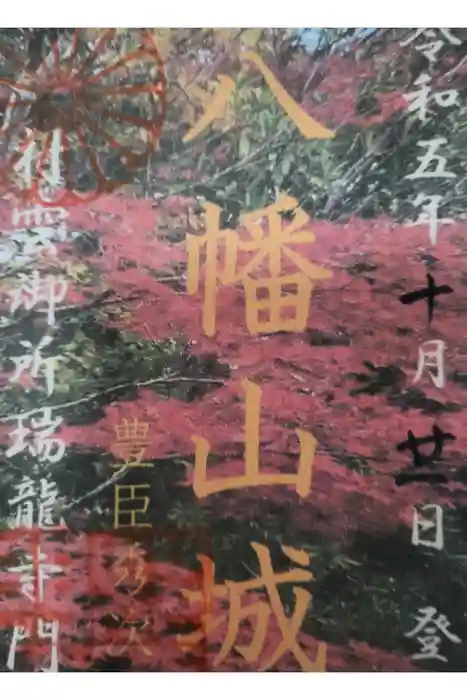 令和五年十月廿日登
八幡山城
豊臣秀次
村雲御所瑞龍寺門